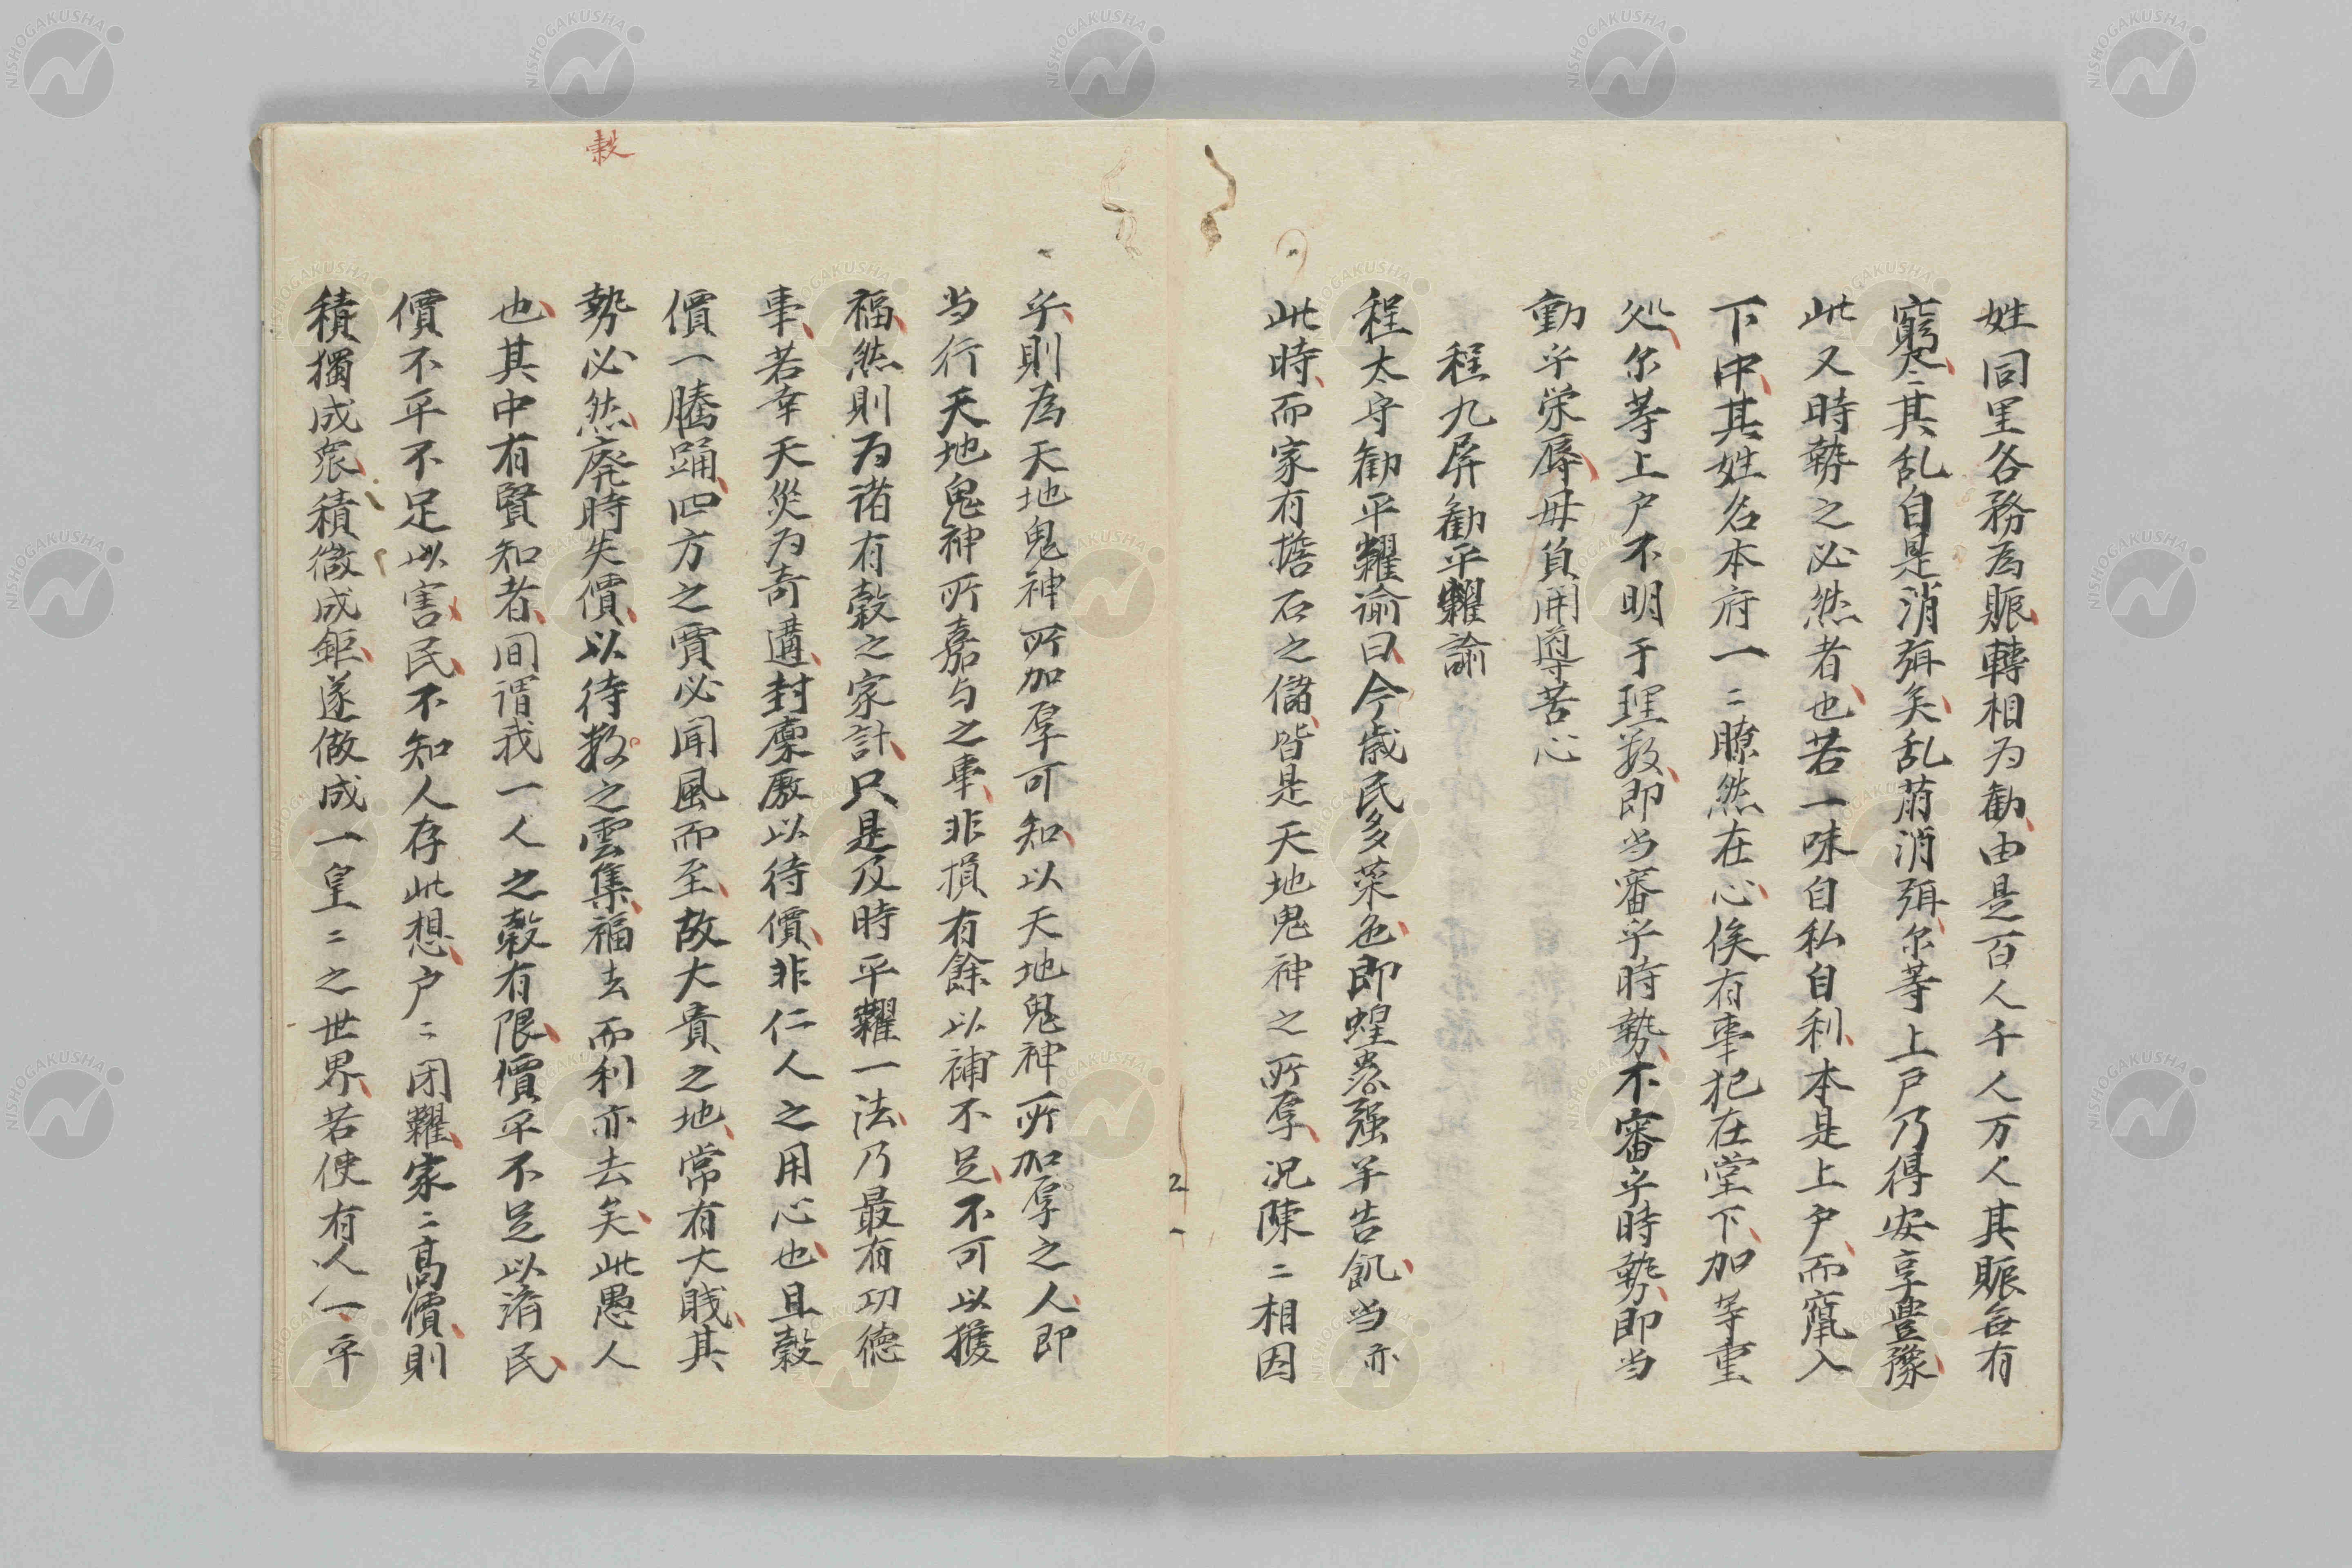 姓同里各務為賑轉相为勸由是百人千人万人其賑每有
窮尽〻其乱自是消弭矣乱萠消弭尔等上戸乃得安享豊豫
此又時勢之必然者也若一味自私自利本是上戸而竄入
下中其姓名本府一〻瞭然在心俟有事犯在堂下加等重
処尔等上戸不明于理数即当審乎時勢不審乎時勢即当
動乎栄辱毋負開導苦心
程九屏勸平糶諭
程太守勧平糶諭曰今歳民多菜色即蝗螽强半告飢当亦
此時而家有擔石之儲皆是天地鬼神之所厚况陳〻相因
乎則為天地鬼神所加厚可知以天地鬼神所加厚之人即
当行天地鬼神所嘉与之事非損有餘以補不足不可以獲
福然則为諸有穀之家計只是及時平糶一法乃最有功徳
事若幸天災为奇遘封廩厫以待價非仁人之用心也且穀
價一騰踊四方之賈必聞風而至故大貴之地常有大賤其
勢必然廃時失價以待数之雲集福去而利亦去矣此愚人
也其中有賢知者间谓我一人之穀有限價平不足以済民
價不平不足以害民不知人存此想户〻闭糶家〻高價則
積獨成衆積微成鉅遂做成一皇〻之世界若使有人一平
穀
NISHOGAKUSHA